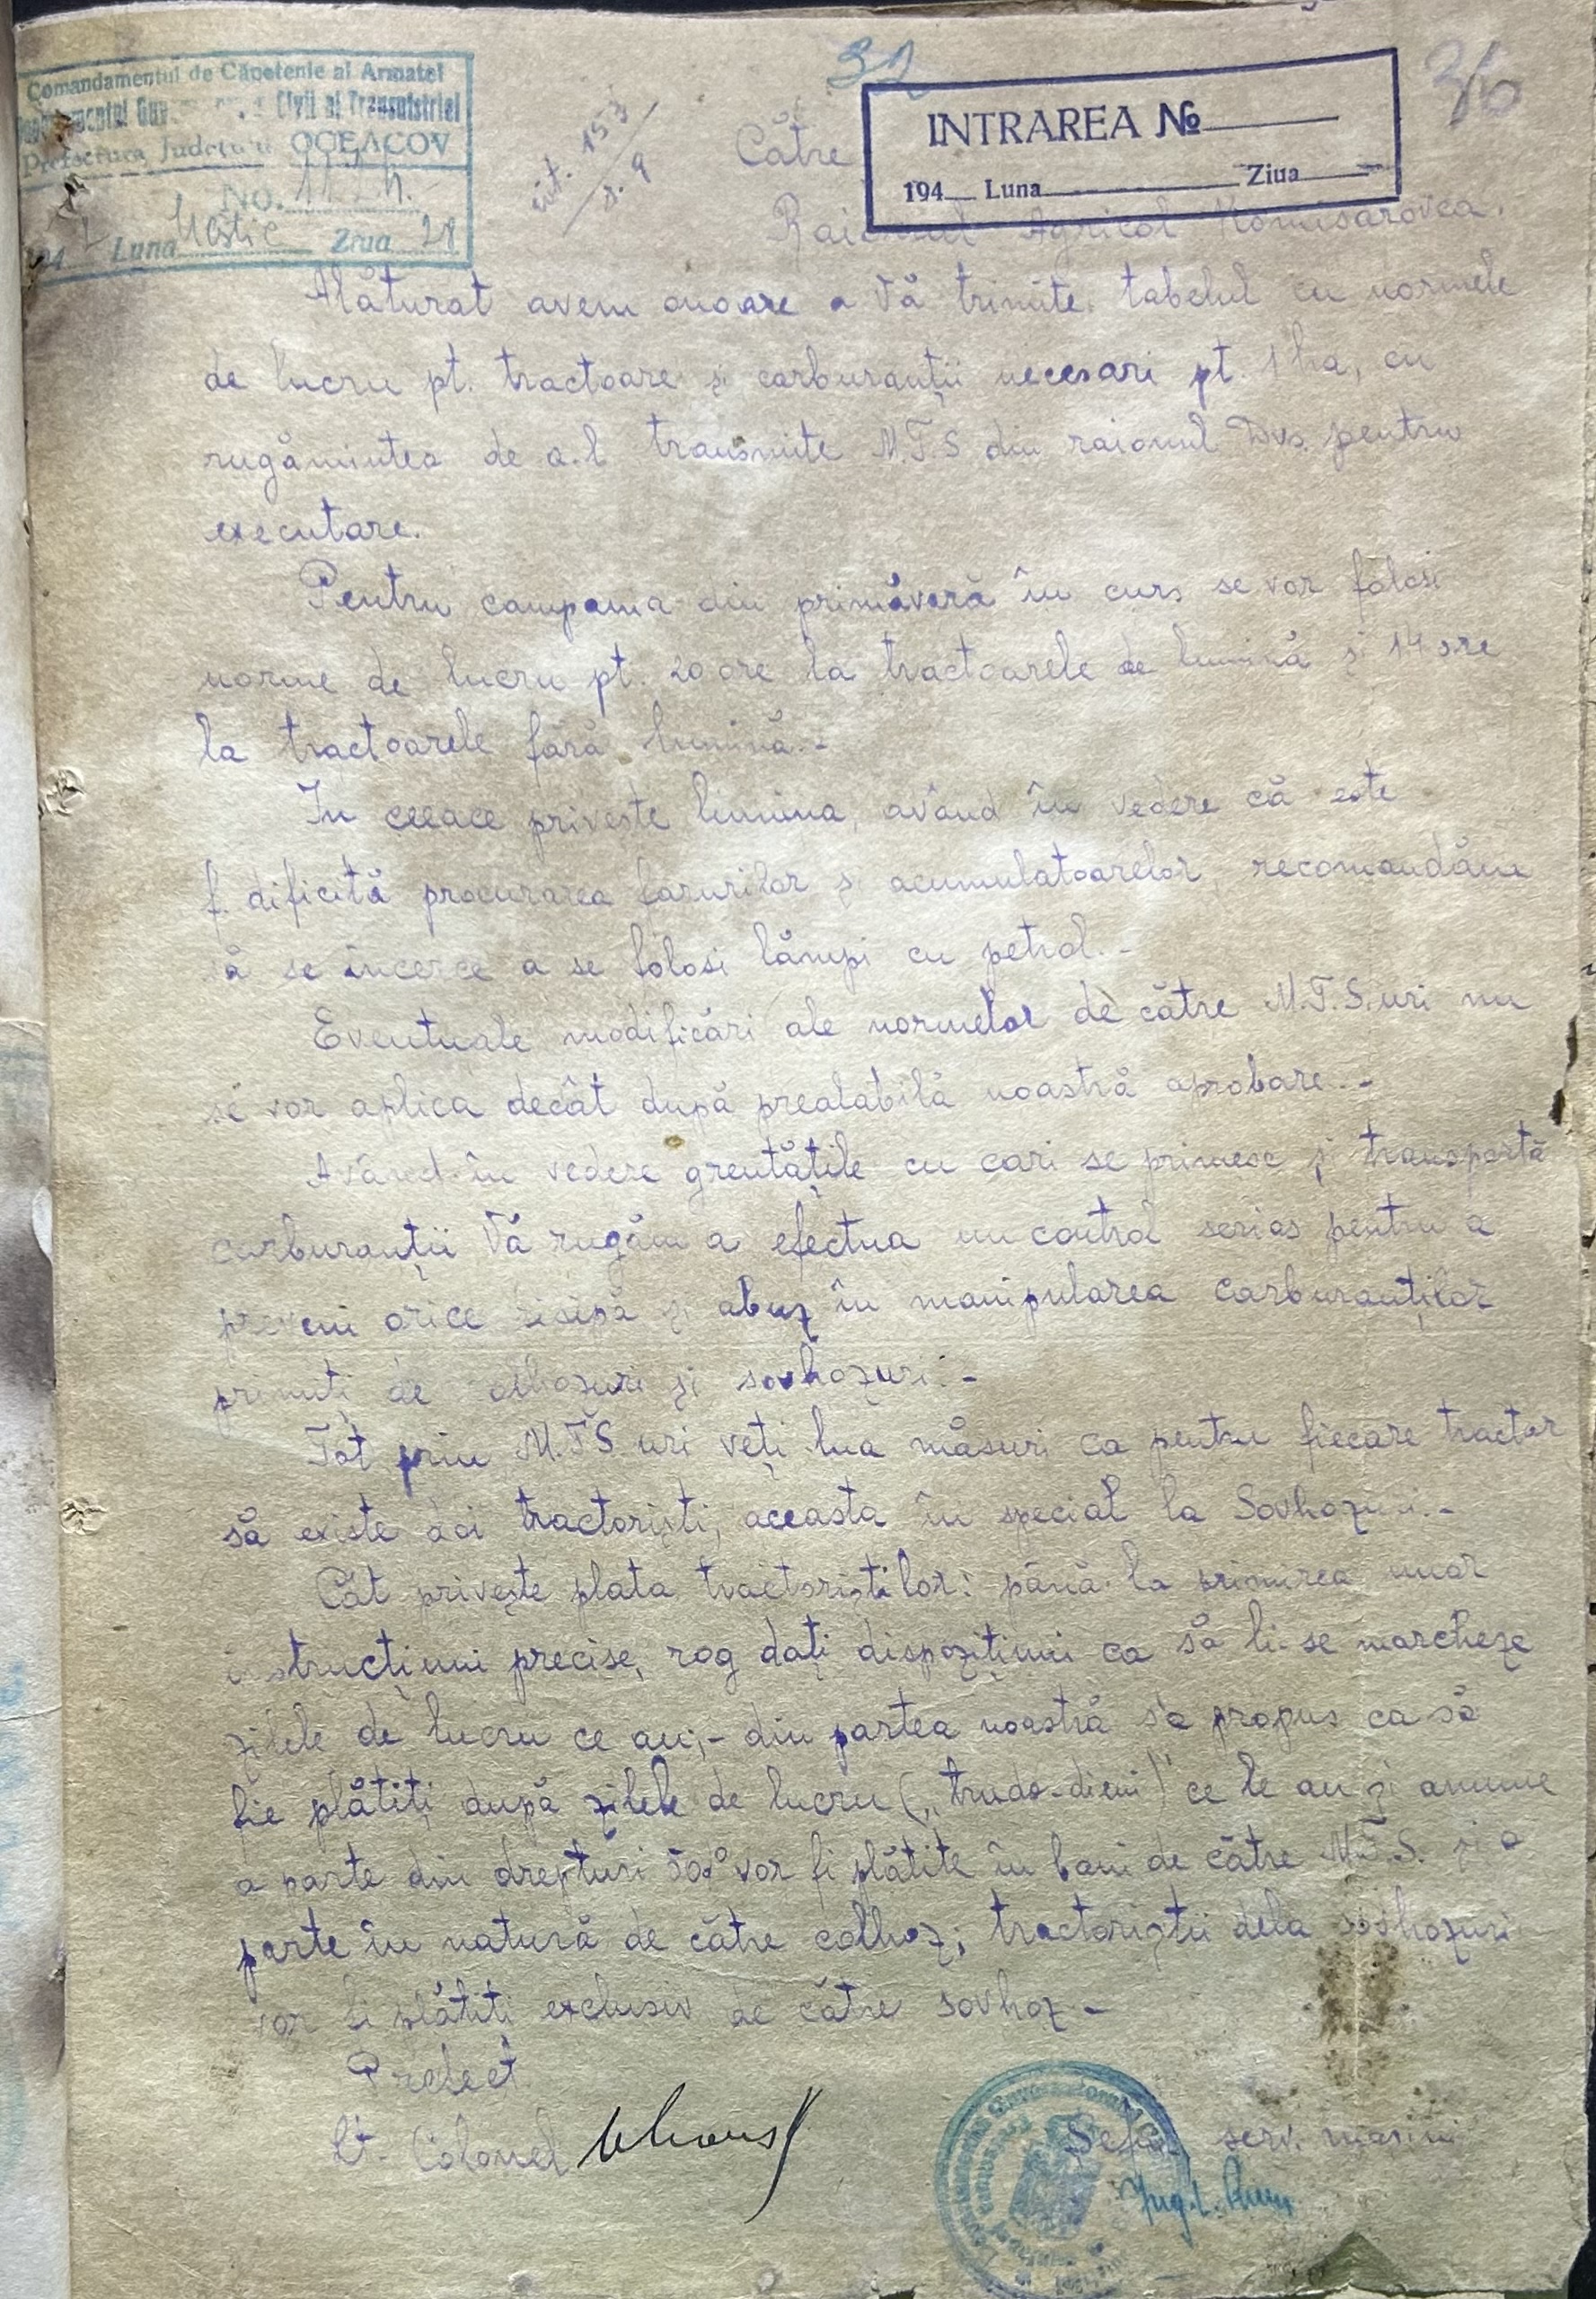 32
36
Comandamentul de Căpetenie al Armatei
Civil al Transnistriei
Prefectura Județului OCEACOV
No.
Luna Ziua 28
INTRAREA No
194 Luna Ziua
Către
Raionul Agricol Komisarovca.
Alăturat avem onoare a Vă trimite tabelul cu normele
de lucru pt. tractoare și carburanții necesari pt. 1 ha, cu
rugămintea de a-l transmite M.T.S din raionul Dvs. pentru
executare.
Pentru campania din primăvară în curs se vor folosi
norme de lucru pt. 20 ore la tractoarele de lumină și 14 ore
la tractoarele fără lumină.-
In ceeace privește lumina, având în vedere că este
f. dificilă procurarea farurilor și acumulatoarelor, recomandăm
să se încerce a se folosi lămpi cu petrol.-
Eventuale modificări ale normelor de către M.T.S.uri nu
se vor aplica decât după prealabilă noastră aprobare.-
Având în vedere greutățile cu cari se primesc și transportă
carburanții Vă rugăm a efectua un control serios pentru a
preveni orice risipă și abuz în manipularea carburanților
primiți de colhozuri și sovhozuri.-
Tot prin M.T.S uri veți lua măsuri ca pentru fiecare tractor
să existe doi tractoriști, aceasta în special la Sovhozuri.-
Cât privește plata tractoriștilor: până la primirea unor
instrucțiuni precise, rog dați dispozițiuni ca să li-se marcheze
zilele de lucru ce au;- din partea noastră s'a propus ca să
fie plătiți după zilele de lucru („trudo-dieni") ce le au și anume
o parte din drepturi 50% vor fi plătite în bani de către M.T.S. și o
parte în natură de către colhoz; tractoriștii dela sovhozuri
vor fi plătiți exclusiv de către sovhoz-
Prefect
Lt. Colonel
Șeful serv. mașini
Ing.